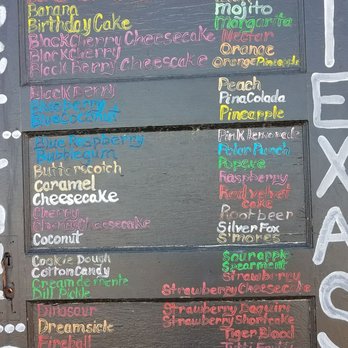 Banana
Birthday Cake
Black Cherry Cheesecake
Black Cherry
Black Berry Cheesecake
Blackberry
Blueberry
Blue Coconut
Blue Raspberry
Bubblegum
Butterscotch
Caramel
Cheesecake
Cherry
Cherry Cheesecake
Coconut
Cookie Dough
Cotton Candy
Creamdemente
Dill Pickle
Dinosaur
Dreamsicle
Fireball
mojito
margarita
Nectar
Orange
Orange Pineapple
Peach
Pina Colada
Pineapple
Pink lemonade
Polar Punch
Popeye
Raspberry
Red velvet
cake
Rootbeer
Silver Fox
S'mores
Sour apple
Spearmint
Strawberry
Strawberry Cheesecake
Strawberry Daquiri
Strawberry Shortcake
Tiger Blood
TEXAS